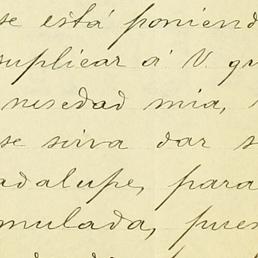 se está poniend
suplicar á V. qu
nesedad mia,
se sirva dar s
adalupe, para
mulada, pues